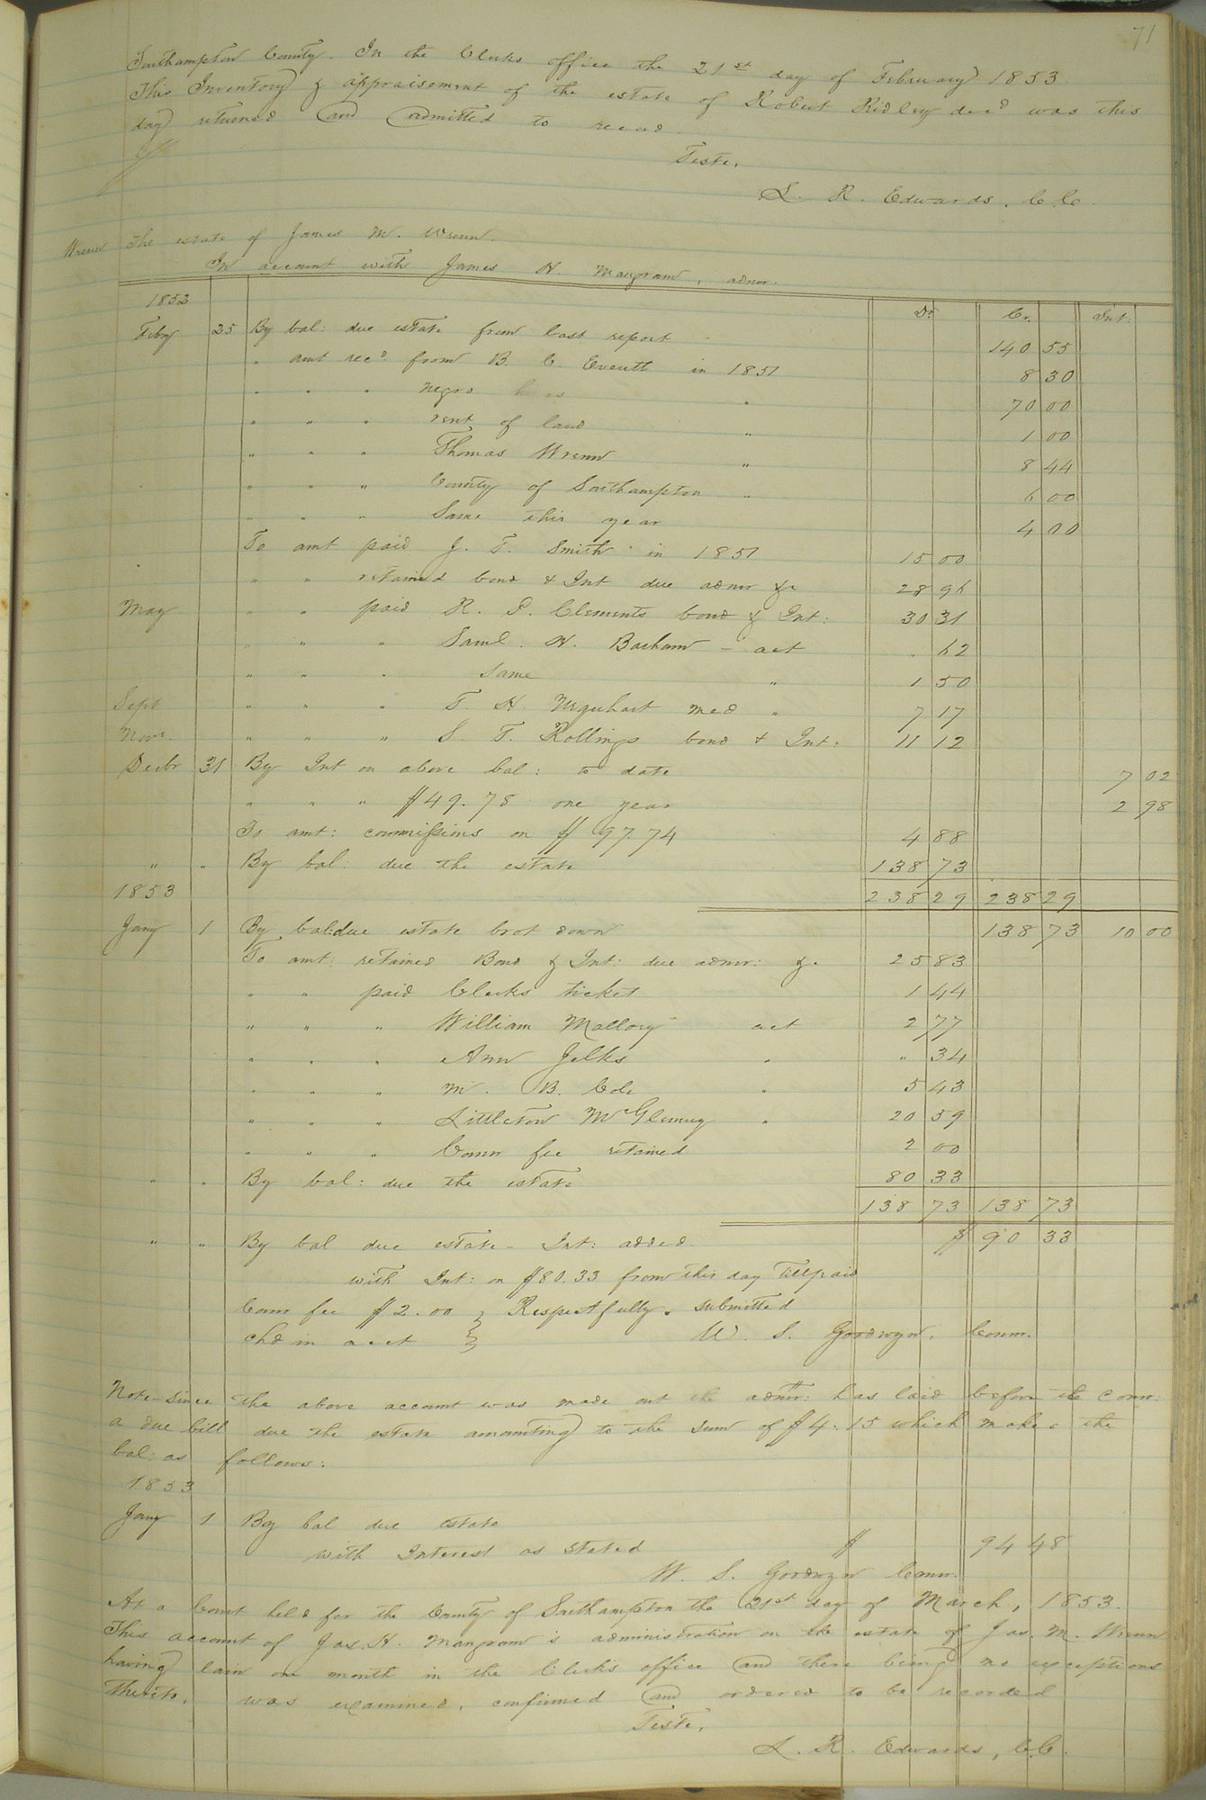 71
Southampton County. In the Clerks office the 21st day of February 1853
This Inventory & appraisement of the estate of Robert Ridley decd was this
day returned and admitted to record.
Teste,
L. R. Edwards, C.C.
Wrenn The estate of James M. Wrenn.
In account with James H. Mangram, admr.
1852 Dr. Cr. Int:
Feby 25 By bal: due estate from last report 140 55
" amt recd from B. C. Everitt in 1851 8 30
" " " negro " 70 00
" " " rent of land " 1 00
" " " Thomas Wrenn " 8 44
" " " County of Southampton " 6 00
" " " Same this year 4 00
To amt paid J. T. Smith in 1851 15 00
" " retained bond & Int due admr &c 28 96
May " " paid R. P. Clements bond & Int: 30 31
" " " Saml. H. Barham - act . 62
" " " Same " 1 50
Sept " " " T. H. Urquhart med " 7 17
Novr. " " " S. T. Rollings bond & Int: 11 12
Decbr 31 By Int on above bal: to date 7 02
" " " $49.78 one year 2 98
To amt: commissions on $97.74 4 88
" " By bal: due the estate 138 73
1853 238 29 238 29
Jany 1 By bal: due estate brot down 138 73 10 00
To amt: retained Bond & Int: due admr: &c 25 83
" " paid Clerks ticket 1 44
" " " William Mallory act 2 77
" " " Ann Jelks " " 34
" " " M. B. Cole " 5 43
" " " Littleton " 20 59
" " " Comr fee retained 2 00
" " By bal: due the estate 80 33
138 73 138 73
" " By bal due estate - Int: added $ 90 33
with Int: on $80.33 from this day till paid
Comr fee $2.00 } Respectfully submitted
chd in acct } W. S. Goodwyn, Comr.
Note - since the above account was made out the admr: has laid before the Comr:
a due bill due the estate amounting to the sum of $4.15 which makes the
bal: as follows:
1853
Jany 1 By bal due estate
with Interest as stated $ 94 48
W. S. Goodwyn Comr.
At a Court held for the County of Southampton the 21st day of March, 1853.
This account of Jas. H. Mangram's administration on the estate of Jas. M. Wrenn
having lain one month in the Clerk's office and there being no exceptions
thereto, was examined, confirmed and ordered to be recorded
Teste,
L. R. Edwards, C.C.